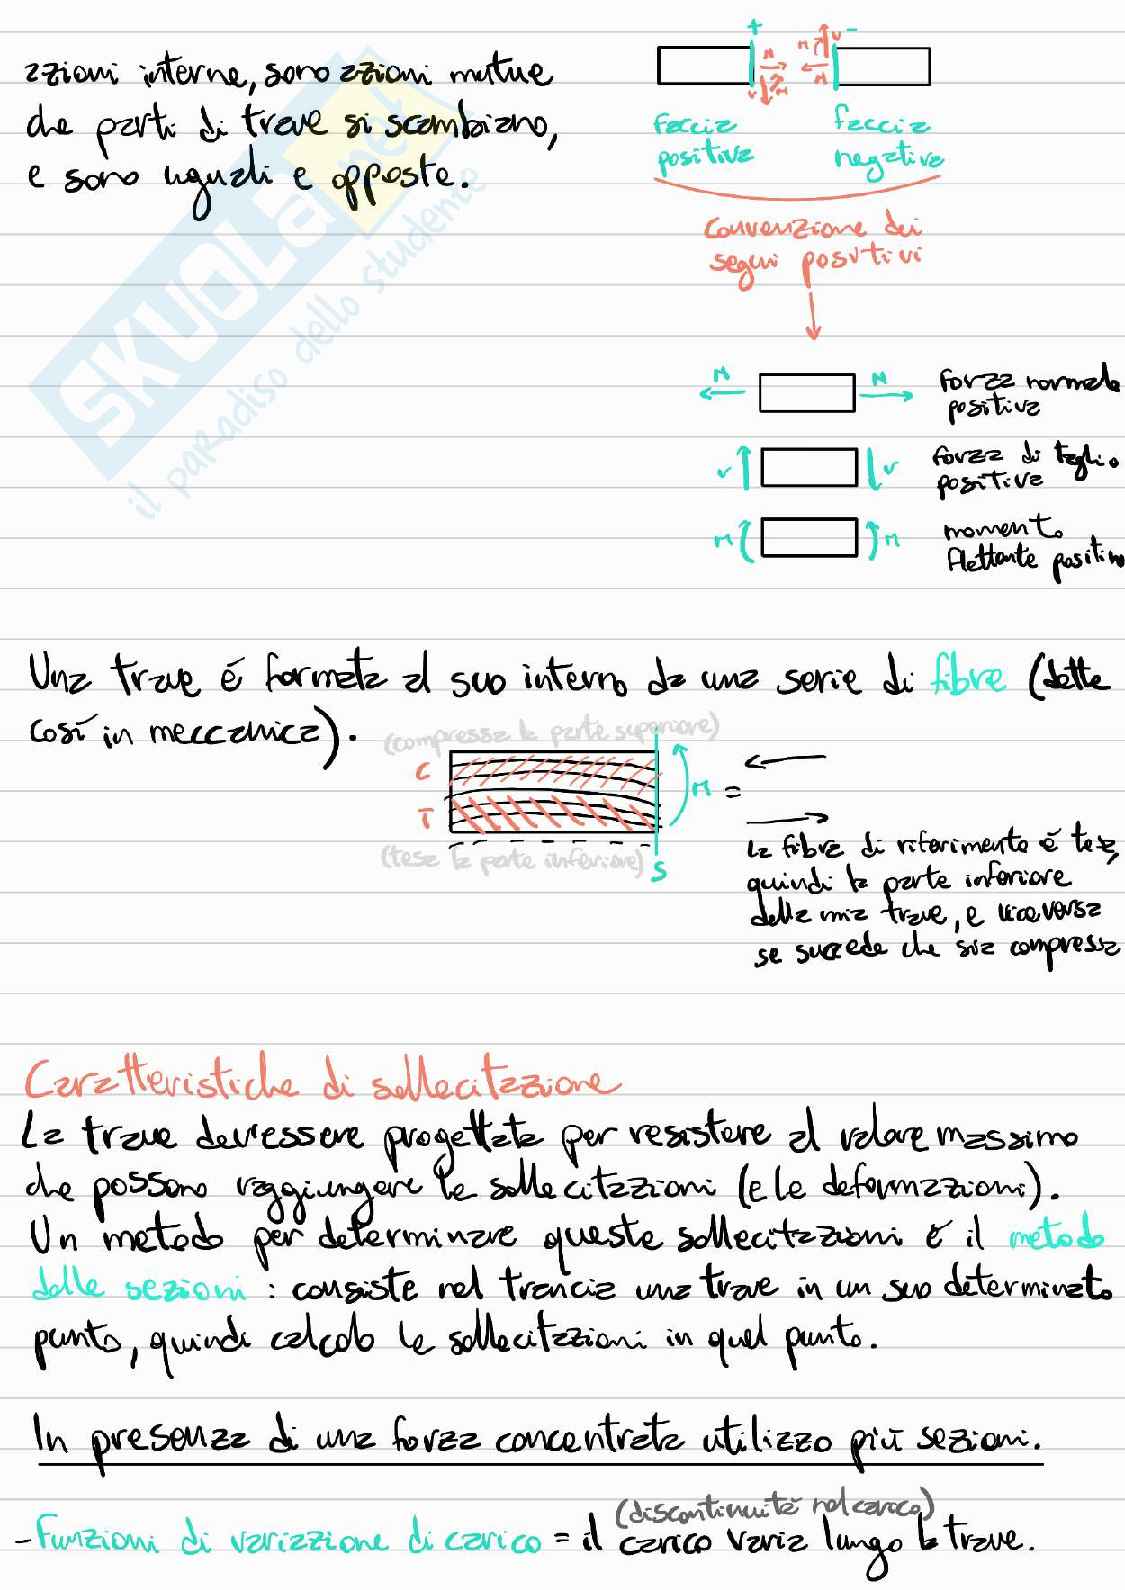 azioni interne, sono azioni mutue
che parti di trave si scambiano,
e sono uguali e opposte.
SKUOLA.net
il paradiso dello studente
+
-
N
V
M
M
V
N
faccia
positiva
faccia
negativa
Convenzione dei
segni positivi
N
N
forza normale
positiva
V
V
forza di taglio
positiva
M
M
momento
flettente positivo
Una trave é formata al suo interno da una serie di fibre (dette
cosí in meccanica).
(compressa la parte superiore)
C
T
M =
(tesa la parte inferiore)
S
la fibra di riferimento é tesa,
quindi la parte inferiore
della mia trave, e viceversa
se succede che sia compressa
Caratteristiche di sollecitazione
La trave dev'essere progettata per resistere al valore massimo
che possono raggiungere le sollecitazioni (e le deformazioni).
Un metodo per determinare queste sollecitazioni é il metodo
delle sezioni : consiste nel trancia una trave in un suo determinato
punto, quindi calcolo le sollecitazioni in quel punto.
In presenza di una forza concentrata utilizzo più sezioni.
(discontinuità nel carico)
- Funzioni di variazione di carico = il carico varia lungo la trave.